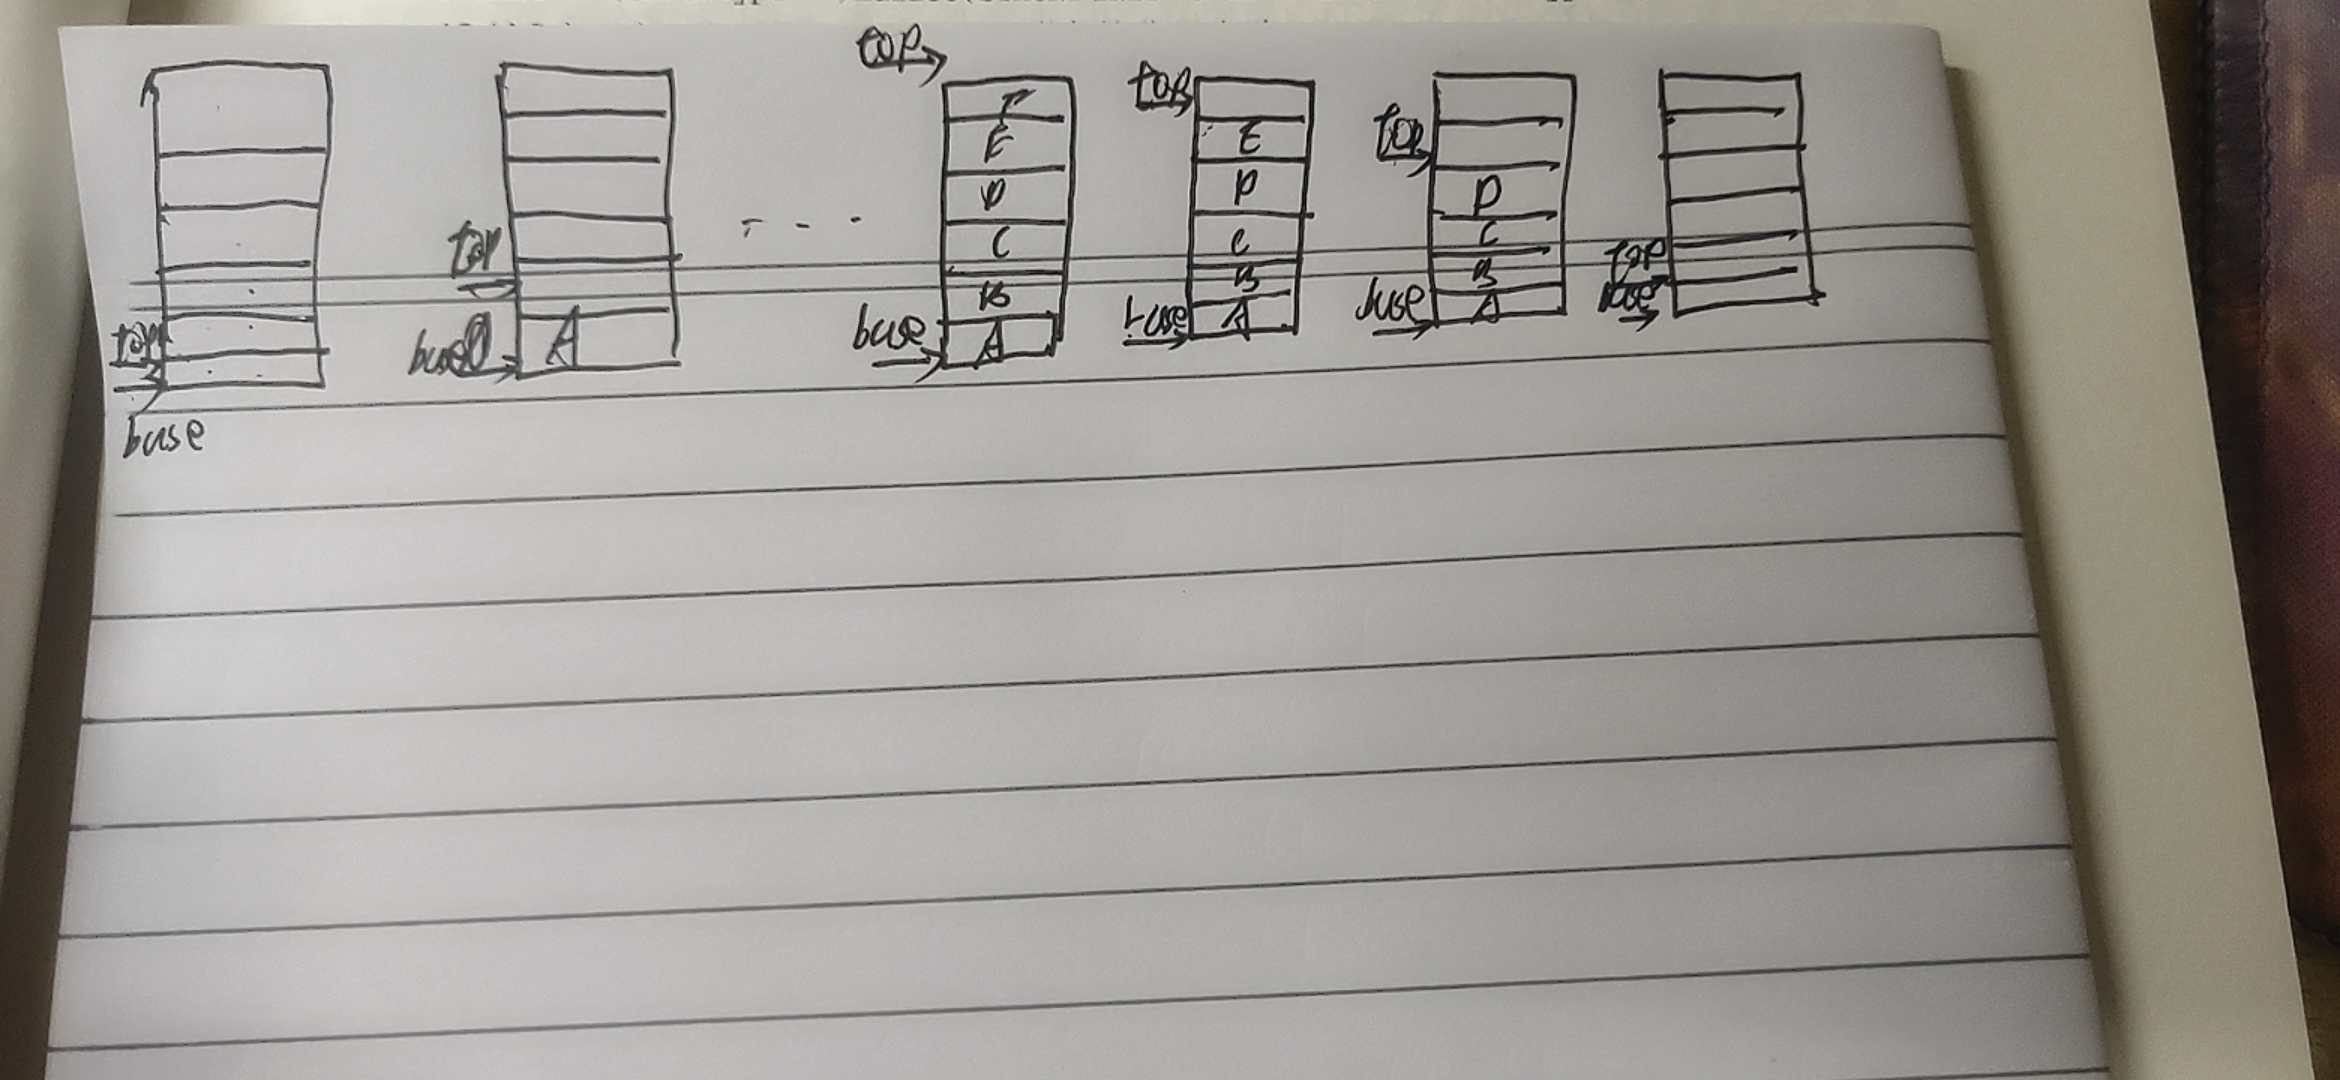 top
base
top
base
A
top
F
E
D
C
B
A
base
top
E
D
C
B
A
base
top
D
C
B
A
base
top
base